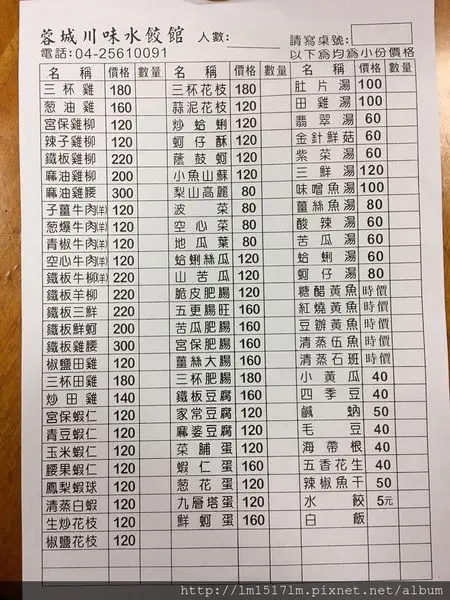 蓉城川味水餃館 人數: 請寫桌號:
電話:04-25610091 以下為均為小份價格
名稱 價格 數量 名稱 價格 數量 名稱 價格 數量
三杯雞 180 三杯花枝 180 肚片湯 100
葱油雞 160 蒜泥花枝 120 田雞湯 100
宮保雞柳 120 炒蛤蜊 120 翡翠湯 60
辣子雞柳 120 蚵仔酥 120 金針鮮菇 60
鐵板雞柳 220 蔭鼓蚵 120 紫菜湯 60
麻油雞柳 200 小魚山蘇 120 三鮮湯 120
麻油雞腰 300 梨山高麗 80 味噌魚湯 100
子薑牛肉(羊) 120 波菜 80 薑絲魚湯 80
葱爆牛肉(羊) 120 空心菜 80 酸辣湯 60
青椒牛肉(羊) 120 地瓜葉 80 苦瓜湯 60
空心牛肉(羊) 120 蛤蜊絲瓜 120 蛤蜊湯 60
鐵板牛柳(羊) 220 山苦瓜 120 蚵仔湯 80
鐵板羊柳 220 脆皮肥腸 120 糖醋黃魚 時價
鐵板三鮮 220 五更腸旺 160 紅燒黃魚 時價
鐵板鮮蚵 200 苦瓜肥腸 160 豆瓣黃魚 時價
鐵板雞腰 300 宮保肥腸 160 清蒸伍魚 時價
椒鹽田雞 120 薑絲大腸 160 清蒸石班 時價
三杯田雞 180 三杯肥腸 180 小黃瓜 40
炒田雞 140 鐵板豆腐 160 四季豆 40
宮保蝦仁 120 家常豆腐 120 鹹蚋 50
青豆蝦仁 120 麻婆豆腐 120 毛豆 40
玉米蝦仁 120 菜脯蛋 120 海帶根 40
腰果蝦仁 120 蝦仁蛋 160 五香花生 40
鳳梨蝦球 120 葱花蛋 120 辣椒魚干 50
清蒸白蝦 120 九層塔蛋 120 水餃 5元
生炒花枝 120 鮮蚵蛋 160 白飯
椒鹽花枝 120
http://lm1517lm.pixnet.net/album